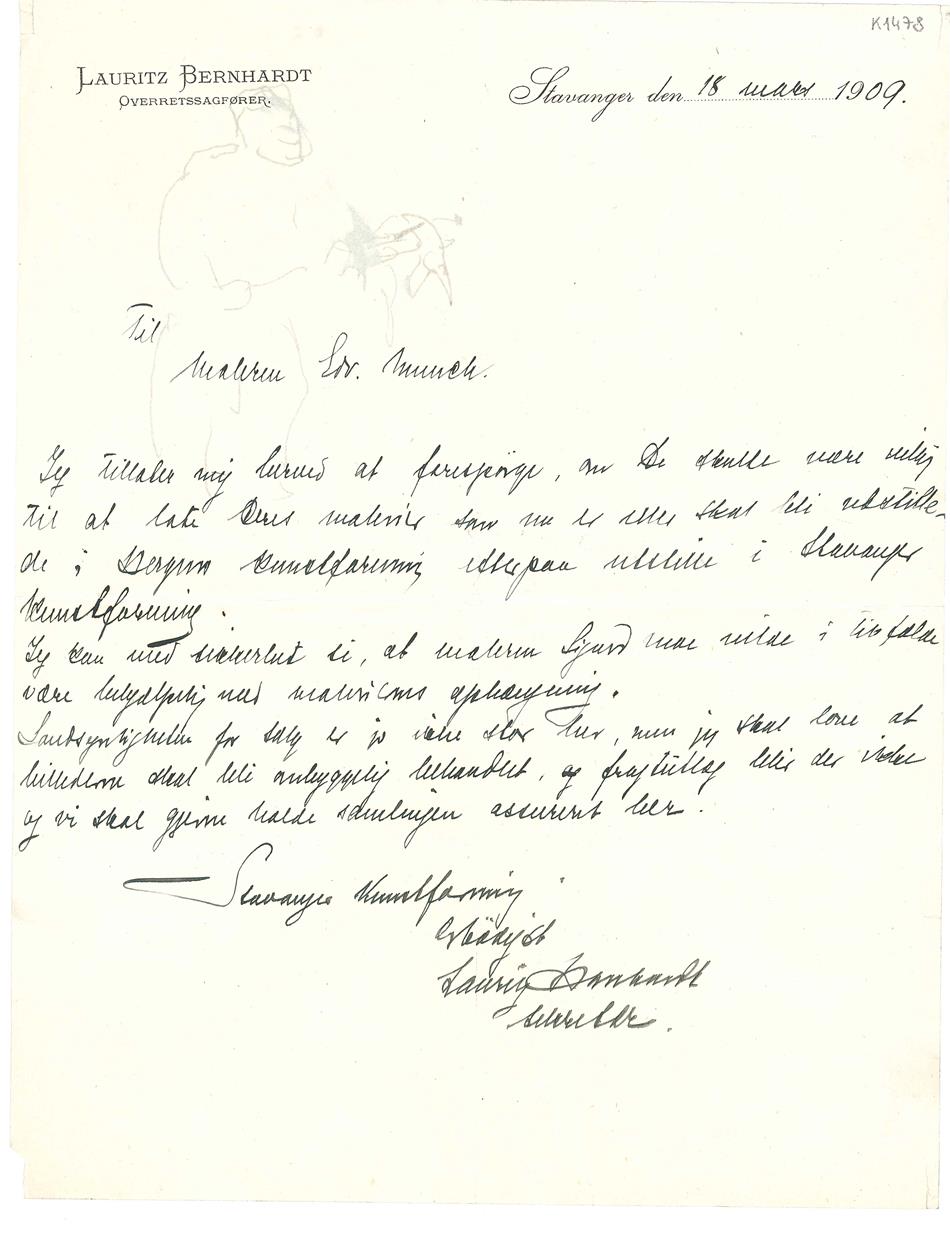 K1478
LAURITZ BERNHARDT
OVERRETSSAGFØRER.
Stavanger den 18 mars 1909.
Til
Maleren Edv. Munch.
Jeg tillater mig herved at forespørge, om De skulde være villig
til at late Deres malerier som nu er eller skal bli utstille-
de i Bergens Kunstforening efterpaa utstille i Stavanger
Kunstforening.
Jeg kan med sikkerhet si, at maleren Sigurd Moe vilde i tilfælde
være behjælpelig med maleriernes ophængning.
Sandsynligheten for salg er jo ikke stor her, men jeg skal love at
billederne skal bli omhyggelig behandlet, og fragtutlæg blir der ikke
og vi skal gjerne holde samlingen assureret her.
Stavanger Kunstforening
Ærbødigst
Lauritz Bernhardt
sekretær.